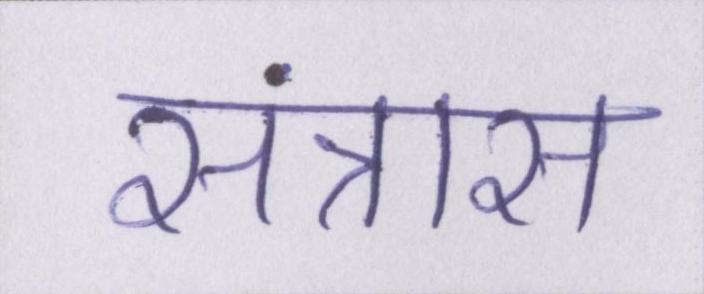 संत्रास